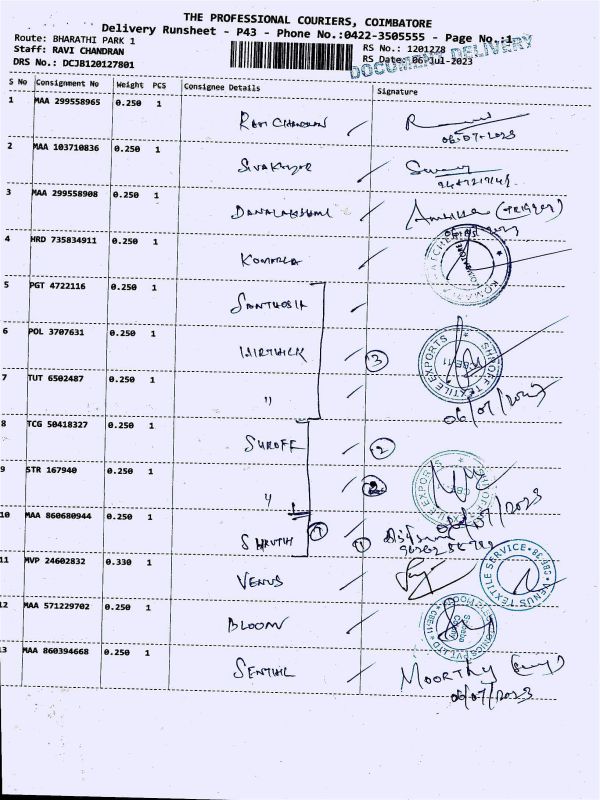 THE PROFESSIONAL COURIERS, COIMBATORE
Delivery Runsheet - P43 - Phone No.:0422-3505555 - Page No.:1
Route: BHARATHI PARK 1
RS No.: 1201278
Staff: RAVI CHANDRAN
RS Date: 06-Jul-2023
DRS No.: DCJB120127801
DOCUMENT DELIVERY
S No Consignment No Weight PCS Consignee Details Signature
1 MAA 299558965 0.250 1 RAVI CHANDRAN
06-07-2023
2 MAA 103710836 0.250 1 SIVAKUMAR
3 MAA 299558908 0.250 1 DANALAKSHMI
4 HRD 735834911 0.250 1 KOMARLA
5 PGT 4722116 0.250 1 SANTHOSH
6 POL 3707631 0.250 1 HIRTHICK 3
SHROFF TEXTILE EXPORTS
CBE-11
7 TUT 6502487 0.250 1 "
06/07/2023
8 TCG 50418327 0.250 1 SHROFF 2
9 STR 167940 0.250 1 "
SHROFF TEXTILE EXPORTS
06/07/2023
10 MAA 860680944 0.250 1 SHRUTHI
11 MVP 24602832 0.330 1 VENUS
VENUS TEXTILE SERVICE
12 MAA 571229702 0.250 1 BLOOM
13 MAA 860394668 0.250 1 SENTHIL MOORTHY
06/07/2023